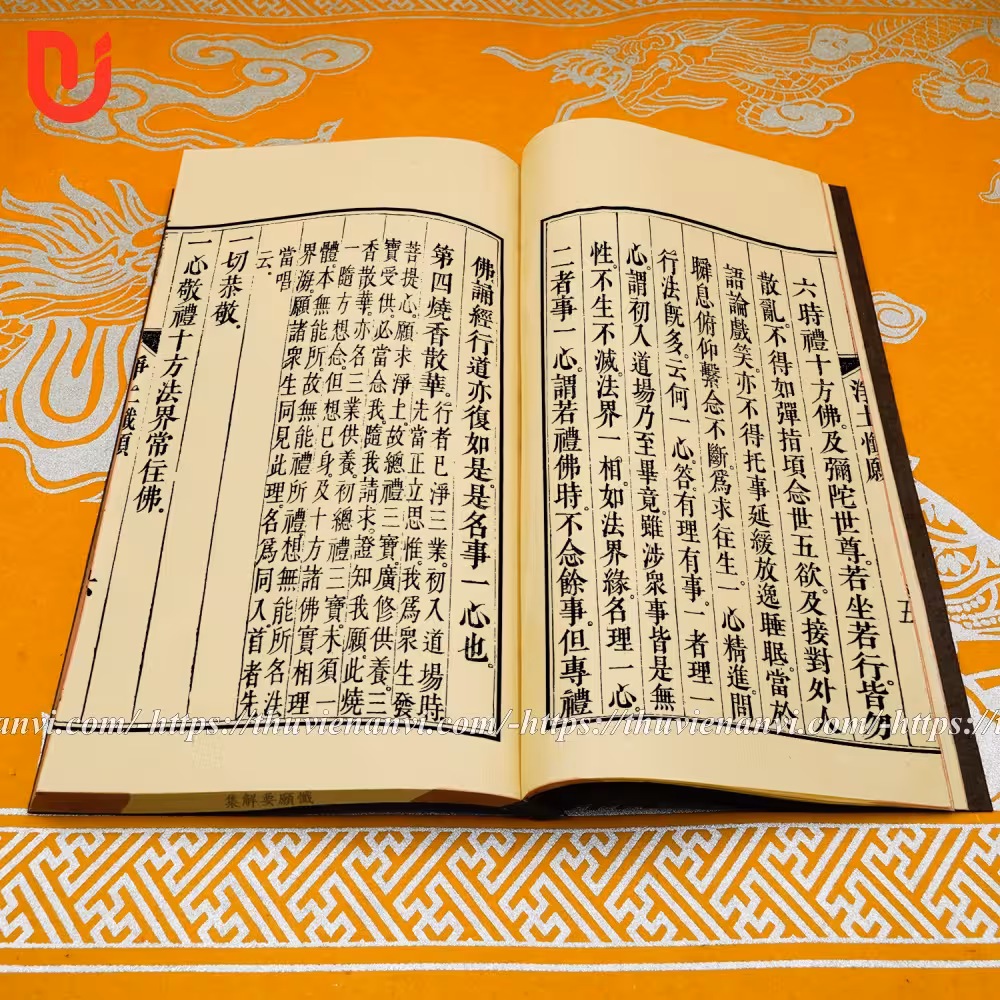 淨土懺願
五
六時禮十方佛。及彌陀世尊。若坐若行。皆勿
散亂。不得如彈指頃念世五欲。及接對外人
語論戲笑。亦不得托事延緩放逸睡眠。當於
瞬息俯仰繫念不斷。爲求往生一心精進。問
行法旣多。云何一心。答有理有事。一者理一
心。謂初入道場乃至畢竟。雖涉衆事皆是無
性不生不滅。法界一相。如法界緣。名理一心
二者事一心。謂若禮佛時。不念餘事。但專禮
佛。誦經行道亦復如是。是名事一心也。
第四燒香散華。行者已淨三業。初入道場時
先當正立思惟。我爲衆生發
菩提心。願求淨土。故總禮三寶。廣修供養。三
寶受供。必當念我。隨我請求。證知我願。此燒
香散華。亦名三業供養。初總禮三寶。未須一
一隨方想念。但想己身及十方諸佛。實相理
體本無能所。故無能禮所禮。想無能所。名法
界海。願諸衆生同見此理。名爲同入。首者先
當唱
云。
一切恭敬。
一心敬禮十方法界常住佛。
淨土懺願
懺願要解集
anvi.com/-https://thuvienanvi.com/-https://thuvienanvi.com/-https://thuvienanvi.com/